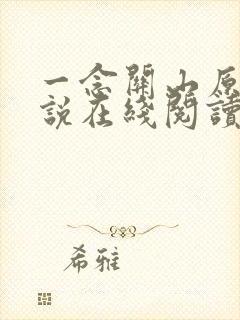 一念關山原
說在綫閱讀
希雅